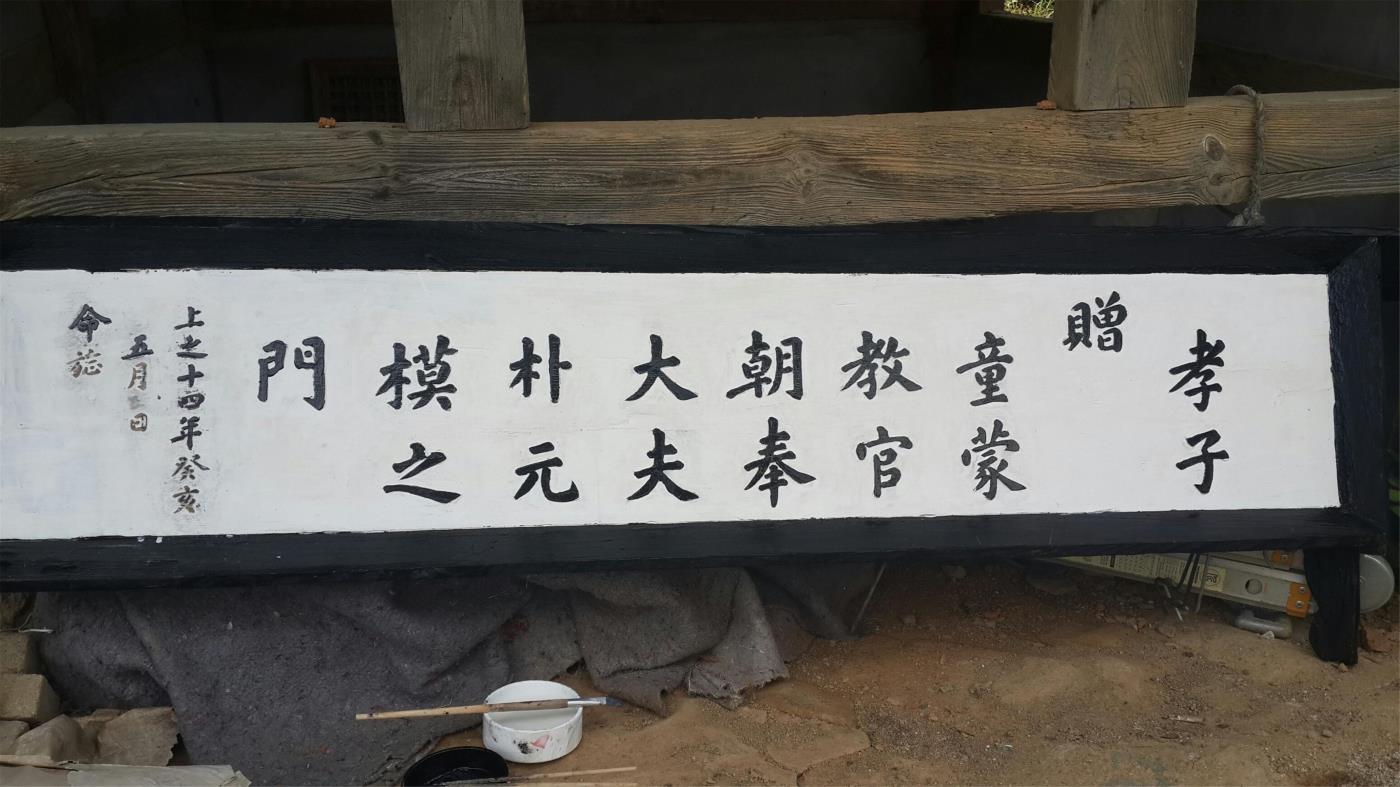 孝子
贈
童蒙
教官
朝奉
大夫
朴元
模之
門
上之十四年癸亥
五月日
命旌